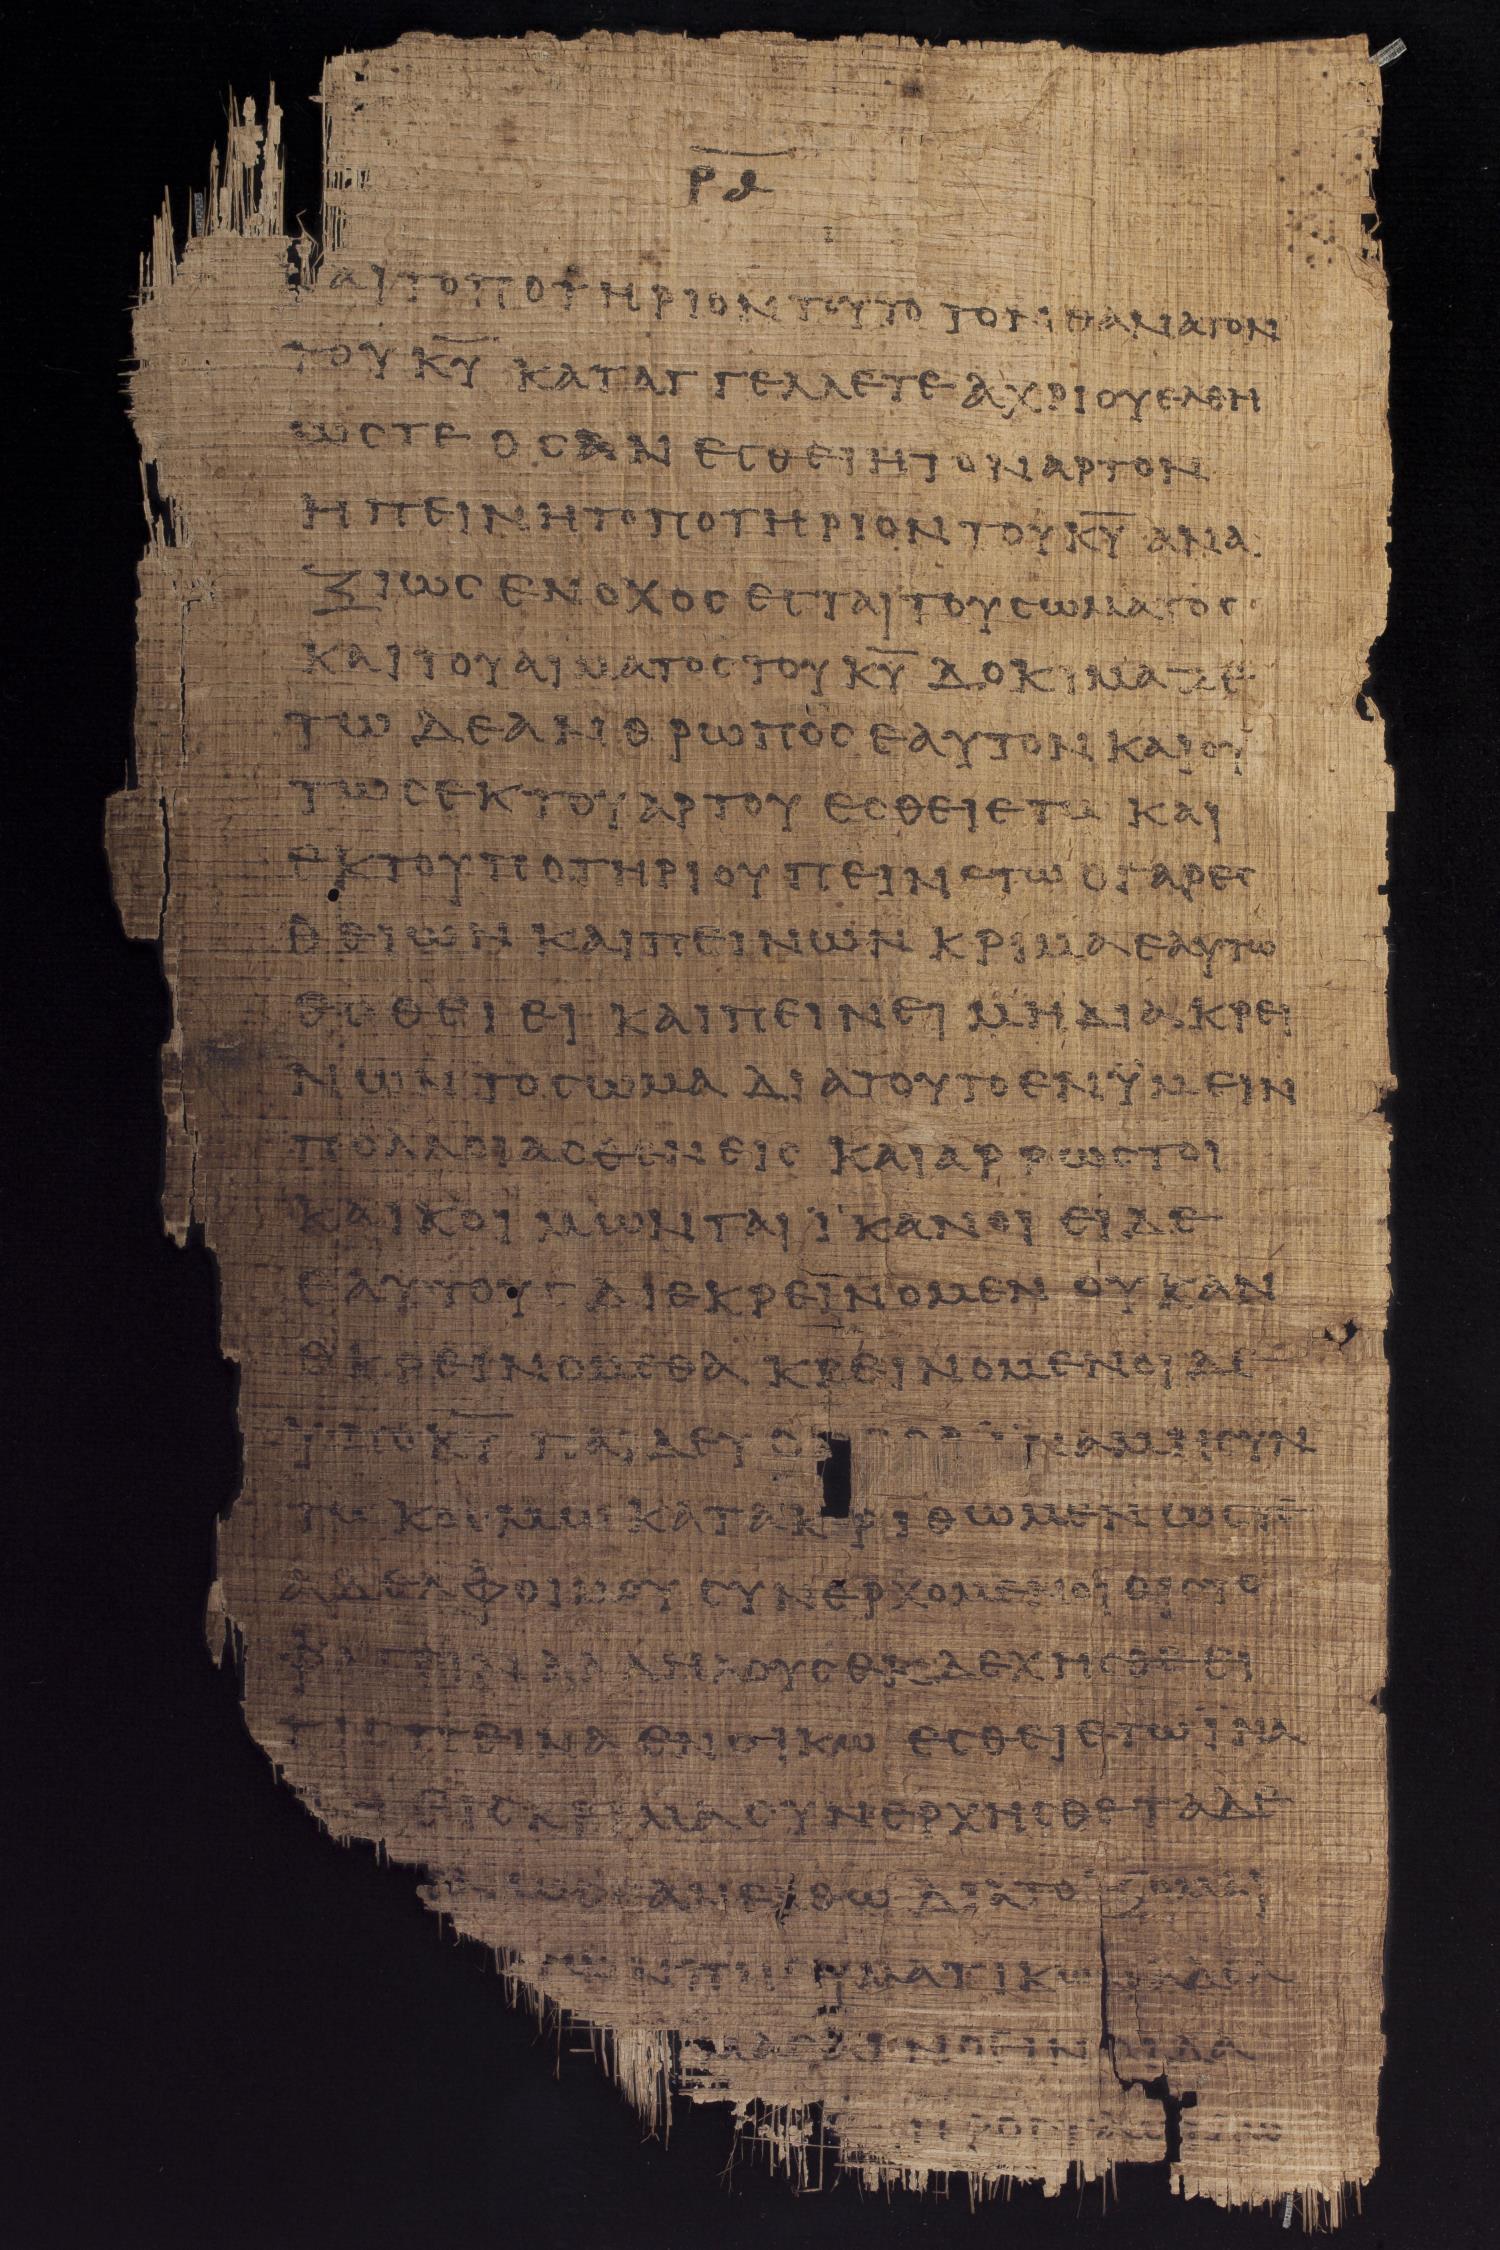 ΡΔ
ΚΑΙ ΤΟ ΠΟΤΗΡΙΟΝ ΤΟΥΤΟ ΤΟΝ ΘΑΝΑΤΟΝ
ΤΟΥ ΚΥ ΚΑΤΑΓΓΕΛΛΕΤΕ ΑΧΡΙ ΟΥ ΕΛΘΗ
ΩΣΤΕ ΟΣ ΑΝ ΕΣΘΕΙΗ ΤΟΝ ΑΡΤΟΝ
Η ΠΕΙΝΗ ΤΟ ΠΟΤΗΡΙΟΝ ΤΟΥ ΚΥ ΑΝΑ
ΞΙΩΣ ΕΝΟΧΟΣ ΕΣΤΑΙ ΤΟΥ ΣΩΜΑΤΟΣ
ΚΑΙ ΤΟΥ ΑΙΜΑΤΟΣ ΤΟΥ ΚΥ ΔΟΚΙΜΑΖΕ
ΤΩ ΔΕ ΑΝΘΡΩΠΟΣ ΕΑΥΤΟΝ ΚΑΙ ΟΥ
ΤΩΣ ΕΚ ΤΟΥ ΑΡΤΟΥ ΕΣΘΕΙΕΤΩ ΚΑΙ
ΕΚ ΤΟΥ ΠΟΤΗΡΙΟΥ ΠΕΙΝΕΤΩ Ο ΓΑΡ ΕΣ
ΘΕΙΩΝ ΚΑΙ ΠΕΙΝΩΝ ΚΡΙΜΑ ΕΑΥΤΩ
ΕΣΘΕΙΕΙ ΚΑΙ ΠΕΙΝΕΙ ΜΗ ΔΙΑΚΡΕΙ
ΝΩΝ ΤΟ ΣΩΜΑ ΔΙΑ ΤΟΥΤΟ ΕΝ ΫΜΕΙΝ
ΠΟΛΛΟΙ ΑΣΘΕΝΕΙΣ ΚΑΙ ΑΡΡΩΣΤΟΙ
ΚΑΙ ΚΟΙΜΩΝΤΑΙ ΪΚΑΝΟΙ ΕΙ ΔΕ
ΕΑΥΤΟΥΣ ΔΙΕΚΡΕΙΝΟΜΕΝ ΟΥΚ ΑΝ
ΕΚΡΕΙΝΟΜΕΘΑ ΚΡΕΙΝΟΜΕΝΟΙ ΔΕ
ΥΠΟ ΚΥ ΠΑΙΔΕΥΟ ΪΝΑ ΜΗ ΣΥΝ
ΤΩ ΚΟΣΜΩ ΚΑΤΑΚΡΙΘΩΜΕΝ ΩΣΤΕ
ΑΔΕΛΦΟΙ ΜΟΥ ΣΥΝΕΡΧΟΜΕΝΟΙ ΕΙΣ ΤΟ
ΦΑΓΕΙΝ ΑΛΛΗΛΟΥΣ ΕΚΔΕΧΗΣΘΕ ΕΙ
ΤΙΣ ΠΕΙΝΑ ΕΝ ΟΙΚΩ ΕΣΘΕΙΕΤΩ ΪΝΑ
ΕΙΣ ΚΡΙΜΑ ΣΥΝΕΡΧΗΣΘΕ ΤΑ ΔΕ
ΑΝ ΕΛΘΩ ΔΙΑΤΑΞΟΜΑΙ
ΤΩΝ ΠΝΕΥΜΑΤΙΚΩΝ
ΑΓΝΟΕΙΝ ΟΙΔΑ